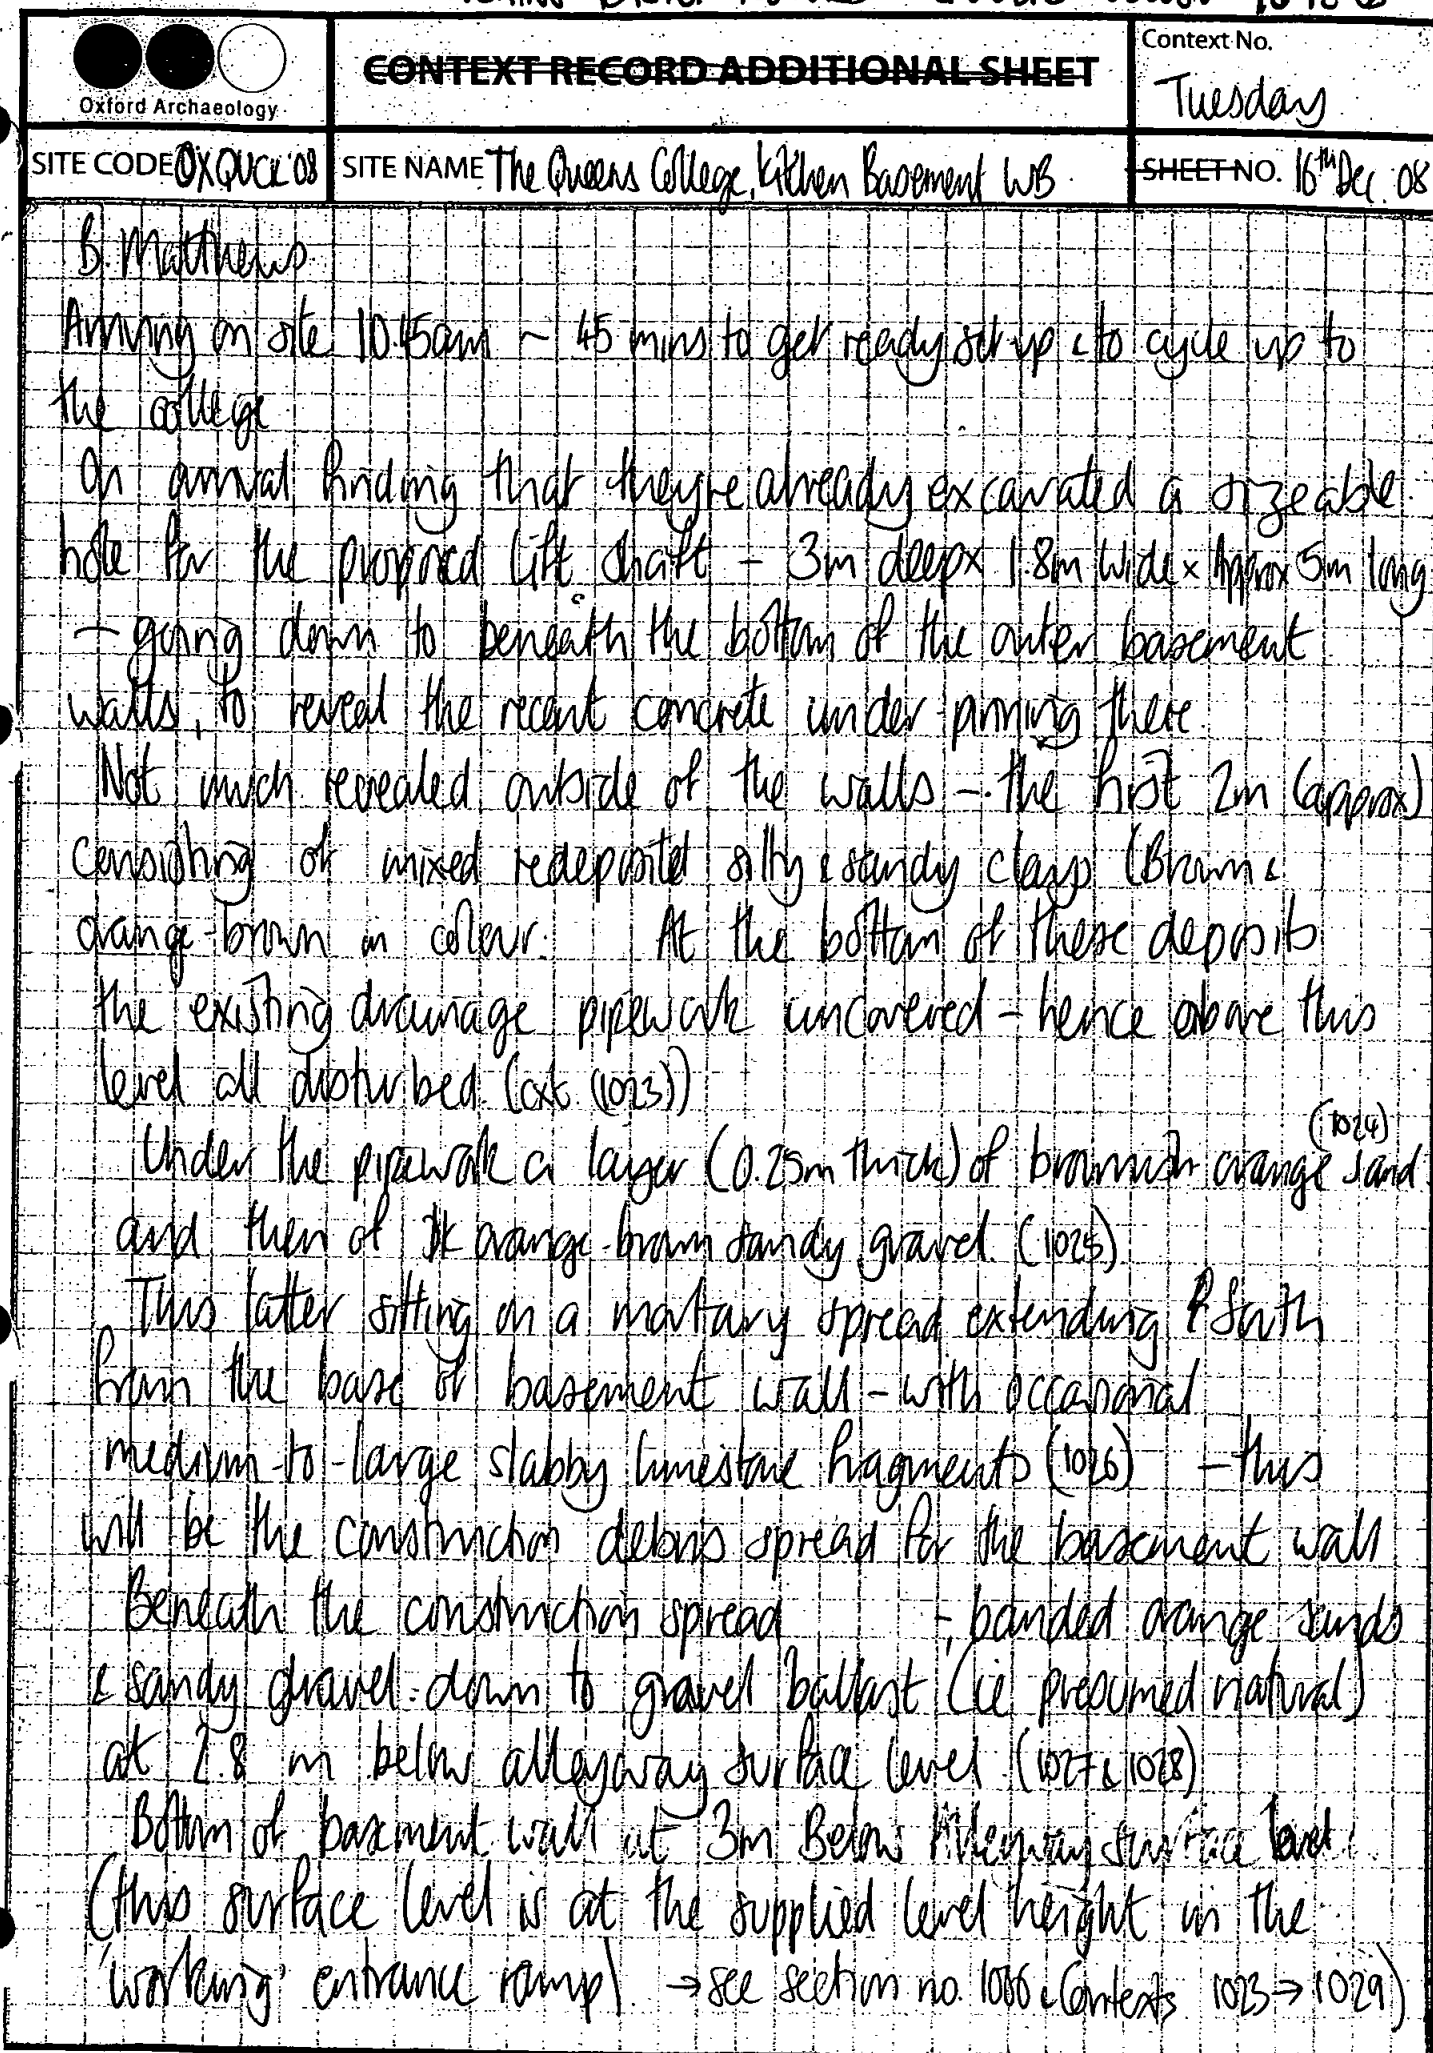 CONTEXT RECORD ADDITIONAL SHEET
Context No.
Tuesday
Oxford Archaeology
SITE CODE OXQUCK '08
SITE NAME The Queens College, Kitchen Basement WB
SHEET NO. 16th Dec. 08
B. Matthews
Arriving on site 10.45am ~ 45 mins to get ready set-up & to cycle up to
the college
On arrival finding that they're already excavated a sizeable
hole for the proposed lift shaft - 3m deep x 1.8m wide x Approx 5m long
- going down to beneath the bottom of the outer basement
walls, to reveal the recent concrete under-pinning there.
Not much revealed outside of the walls - the first 2m (approx)
consisting of mixed redeposited silty & sandy clays (Brown &
orange-brown in colour. At the bottom of these deposits
the existing drainage pipework uncovered - hence above this
level all disturbed. (cxt. (1023))
Under the pipework a layer (0.25m thick) of brownish orange sand (1024)
and then of dk orange-brown sandy gravel. (1025)
This latter sitting on a mortary spread extending South
from the base of basement wall - with occasional
medium-to-large slabby limestone fragments (1026) - this
will be the construction debris spread for the basement wall
Beneath the construction spread -, banded orange sands
& sandy gravel down to gravel ballast (ie presumed natural)
at 2.8 m below alleyway surface level. (1027 & 1028)
Bottom of basement wall at 3m Below Alleyway surface level.
(this surface level is at the supplied level height in the
'working' entrance ramp) → see section no. 1006 & Contexts 1023 → 1029)